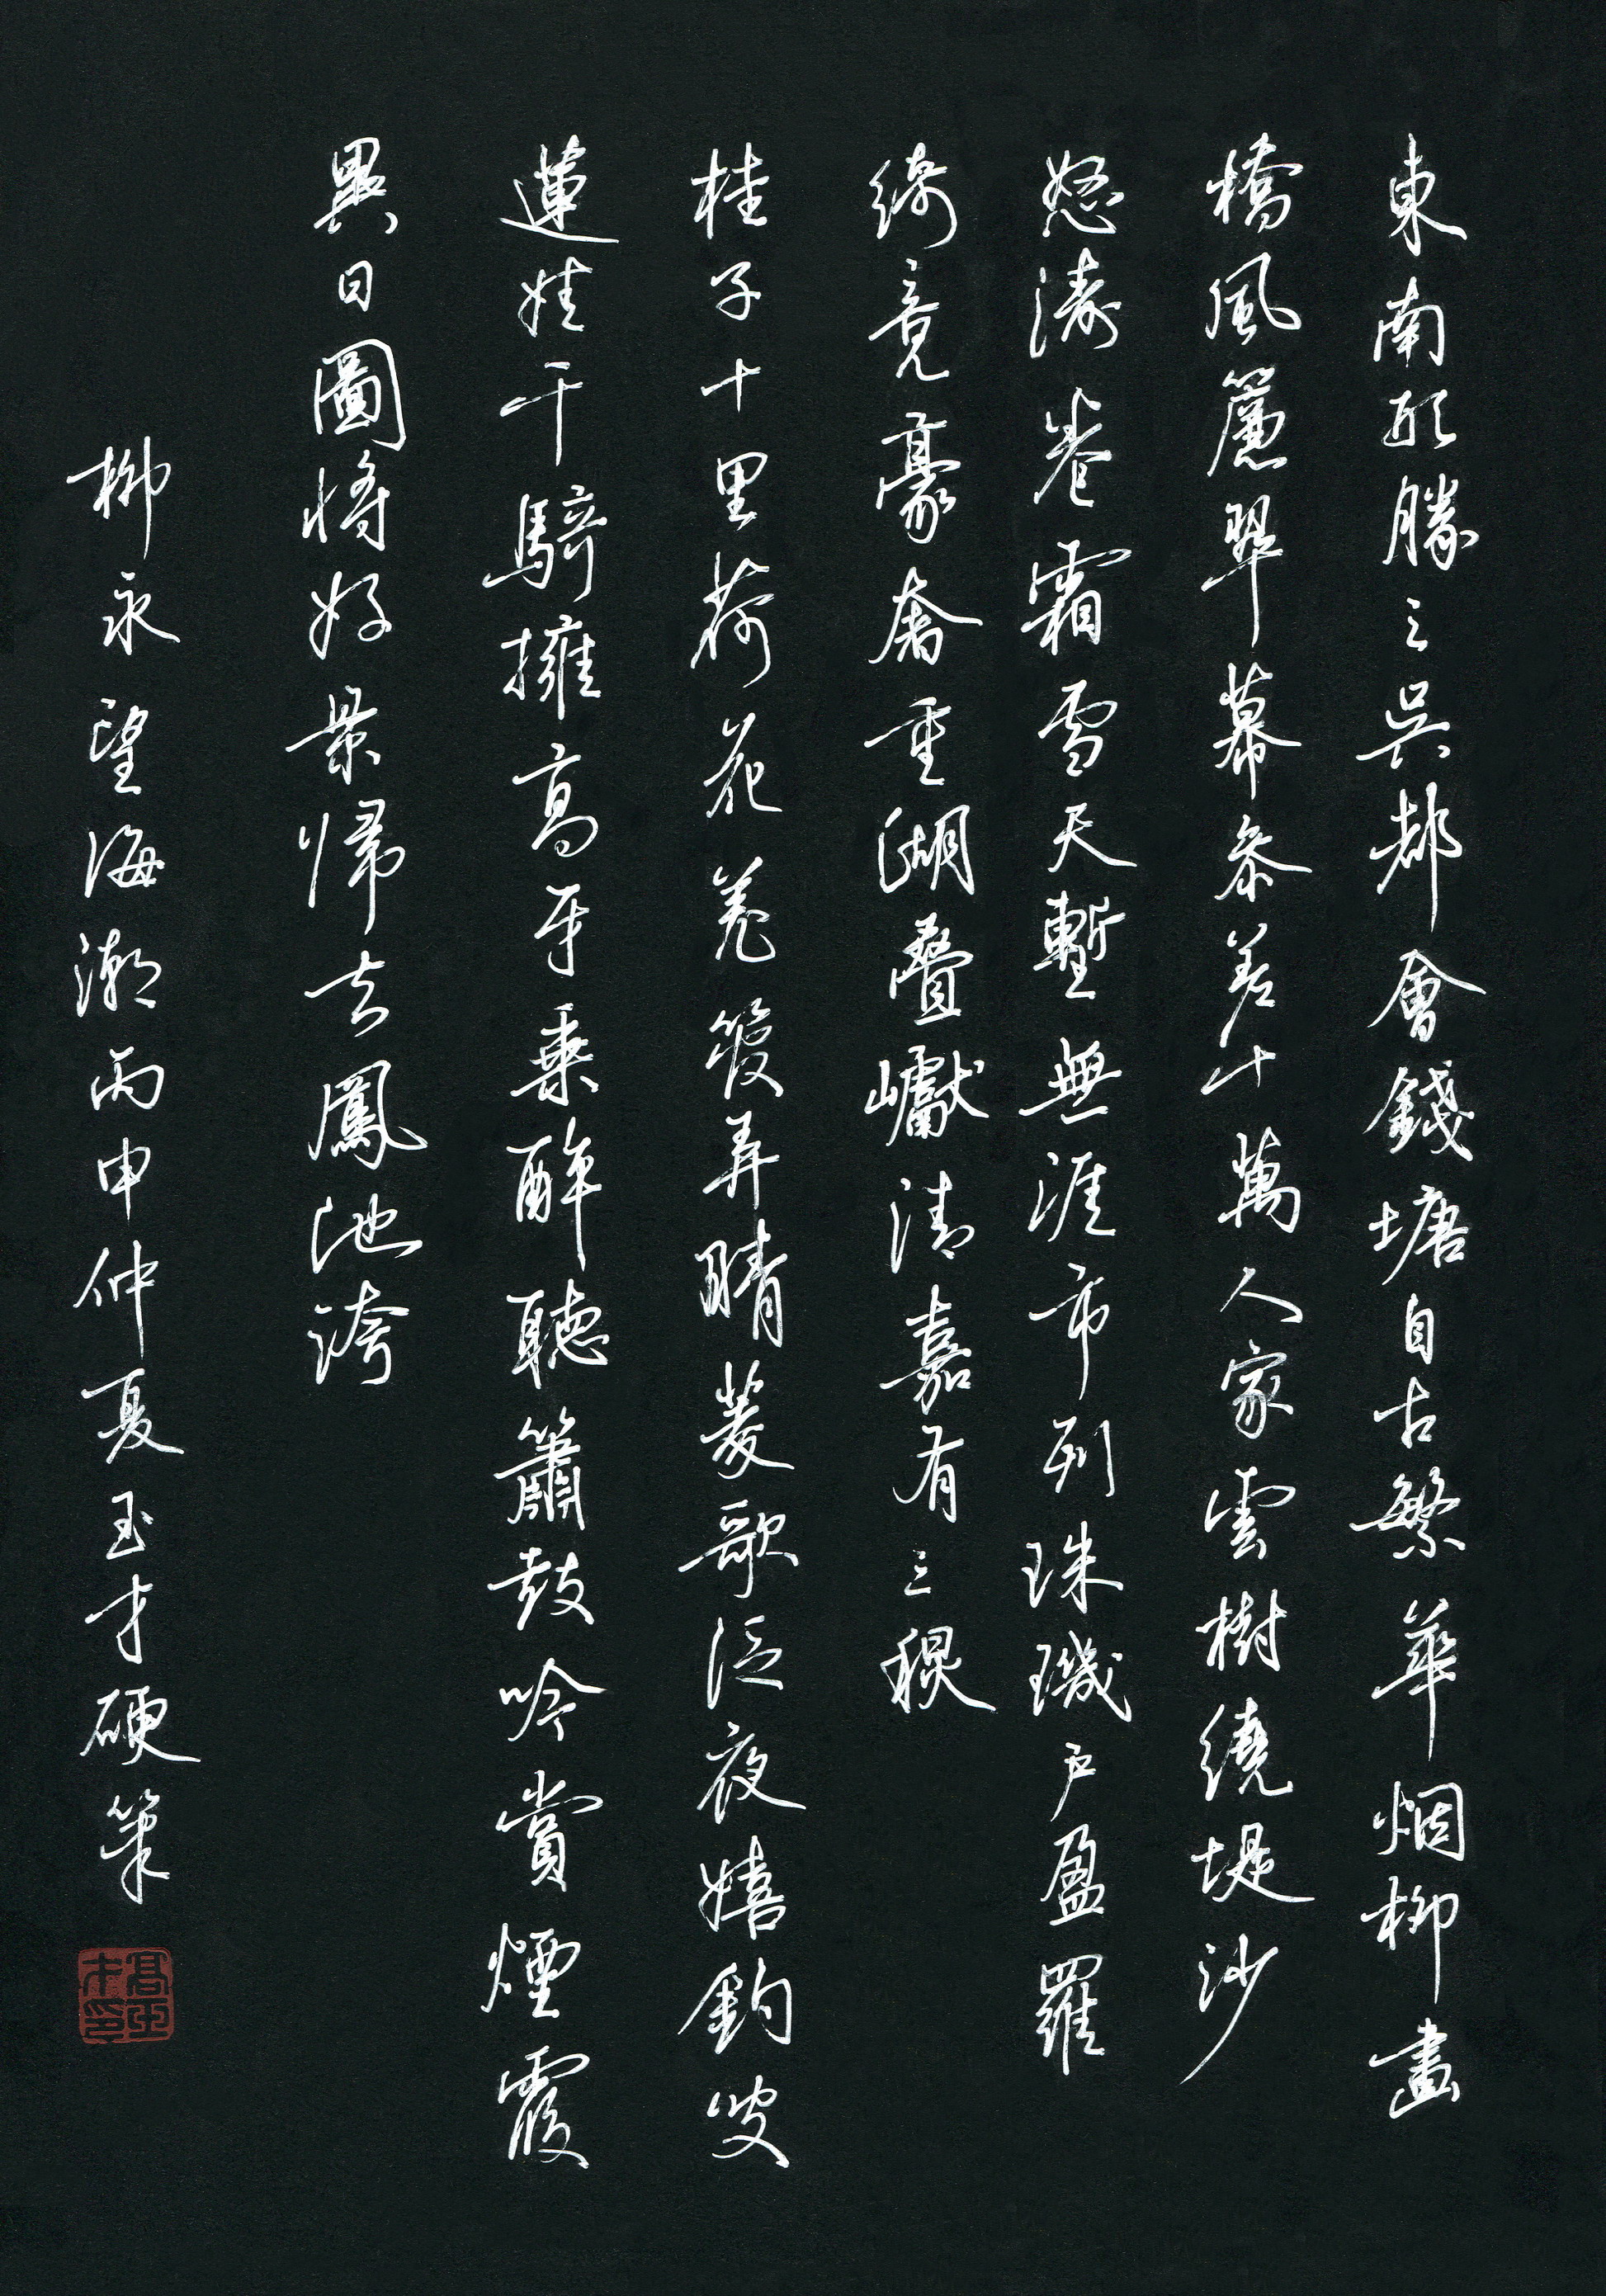 東南形勝三吳都會錢塘自古繁華烟柳畫
橋風簾翠幕參差十萬人家雲樹繞堤沙
怒濤卷霜雪天塹無涯市列珠璣戶盈羅
綺竞豪奢重湖叠巘清嘉有三秋
桂子十里荷花羌管弄晴菱歌泛夜嬉釣叟
蓮娃千騎擁高牙乘醉聽簫鼓吟賞煙霞
異日圖將好景歸去鳳池誇
柳永望海潮丙申仲夏玉才硬筆
高玉才印